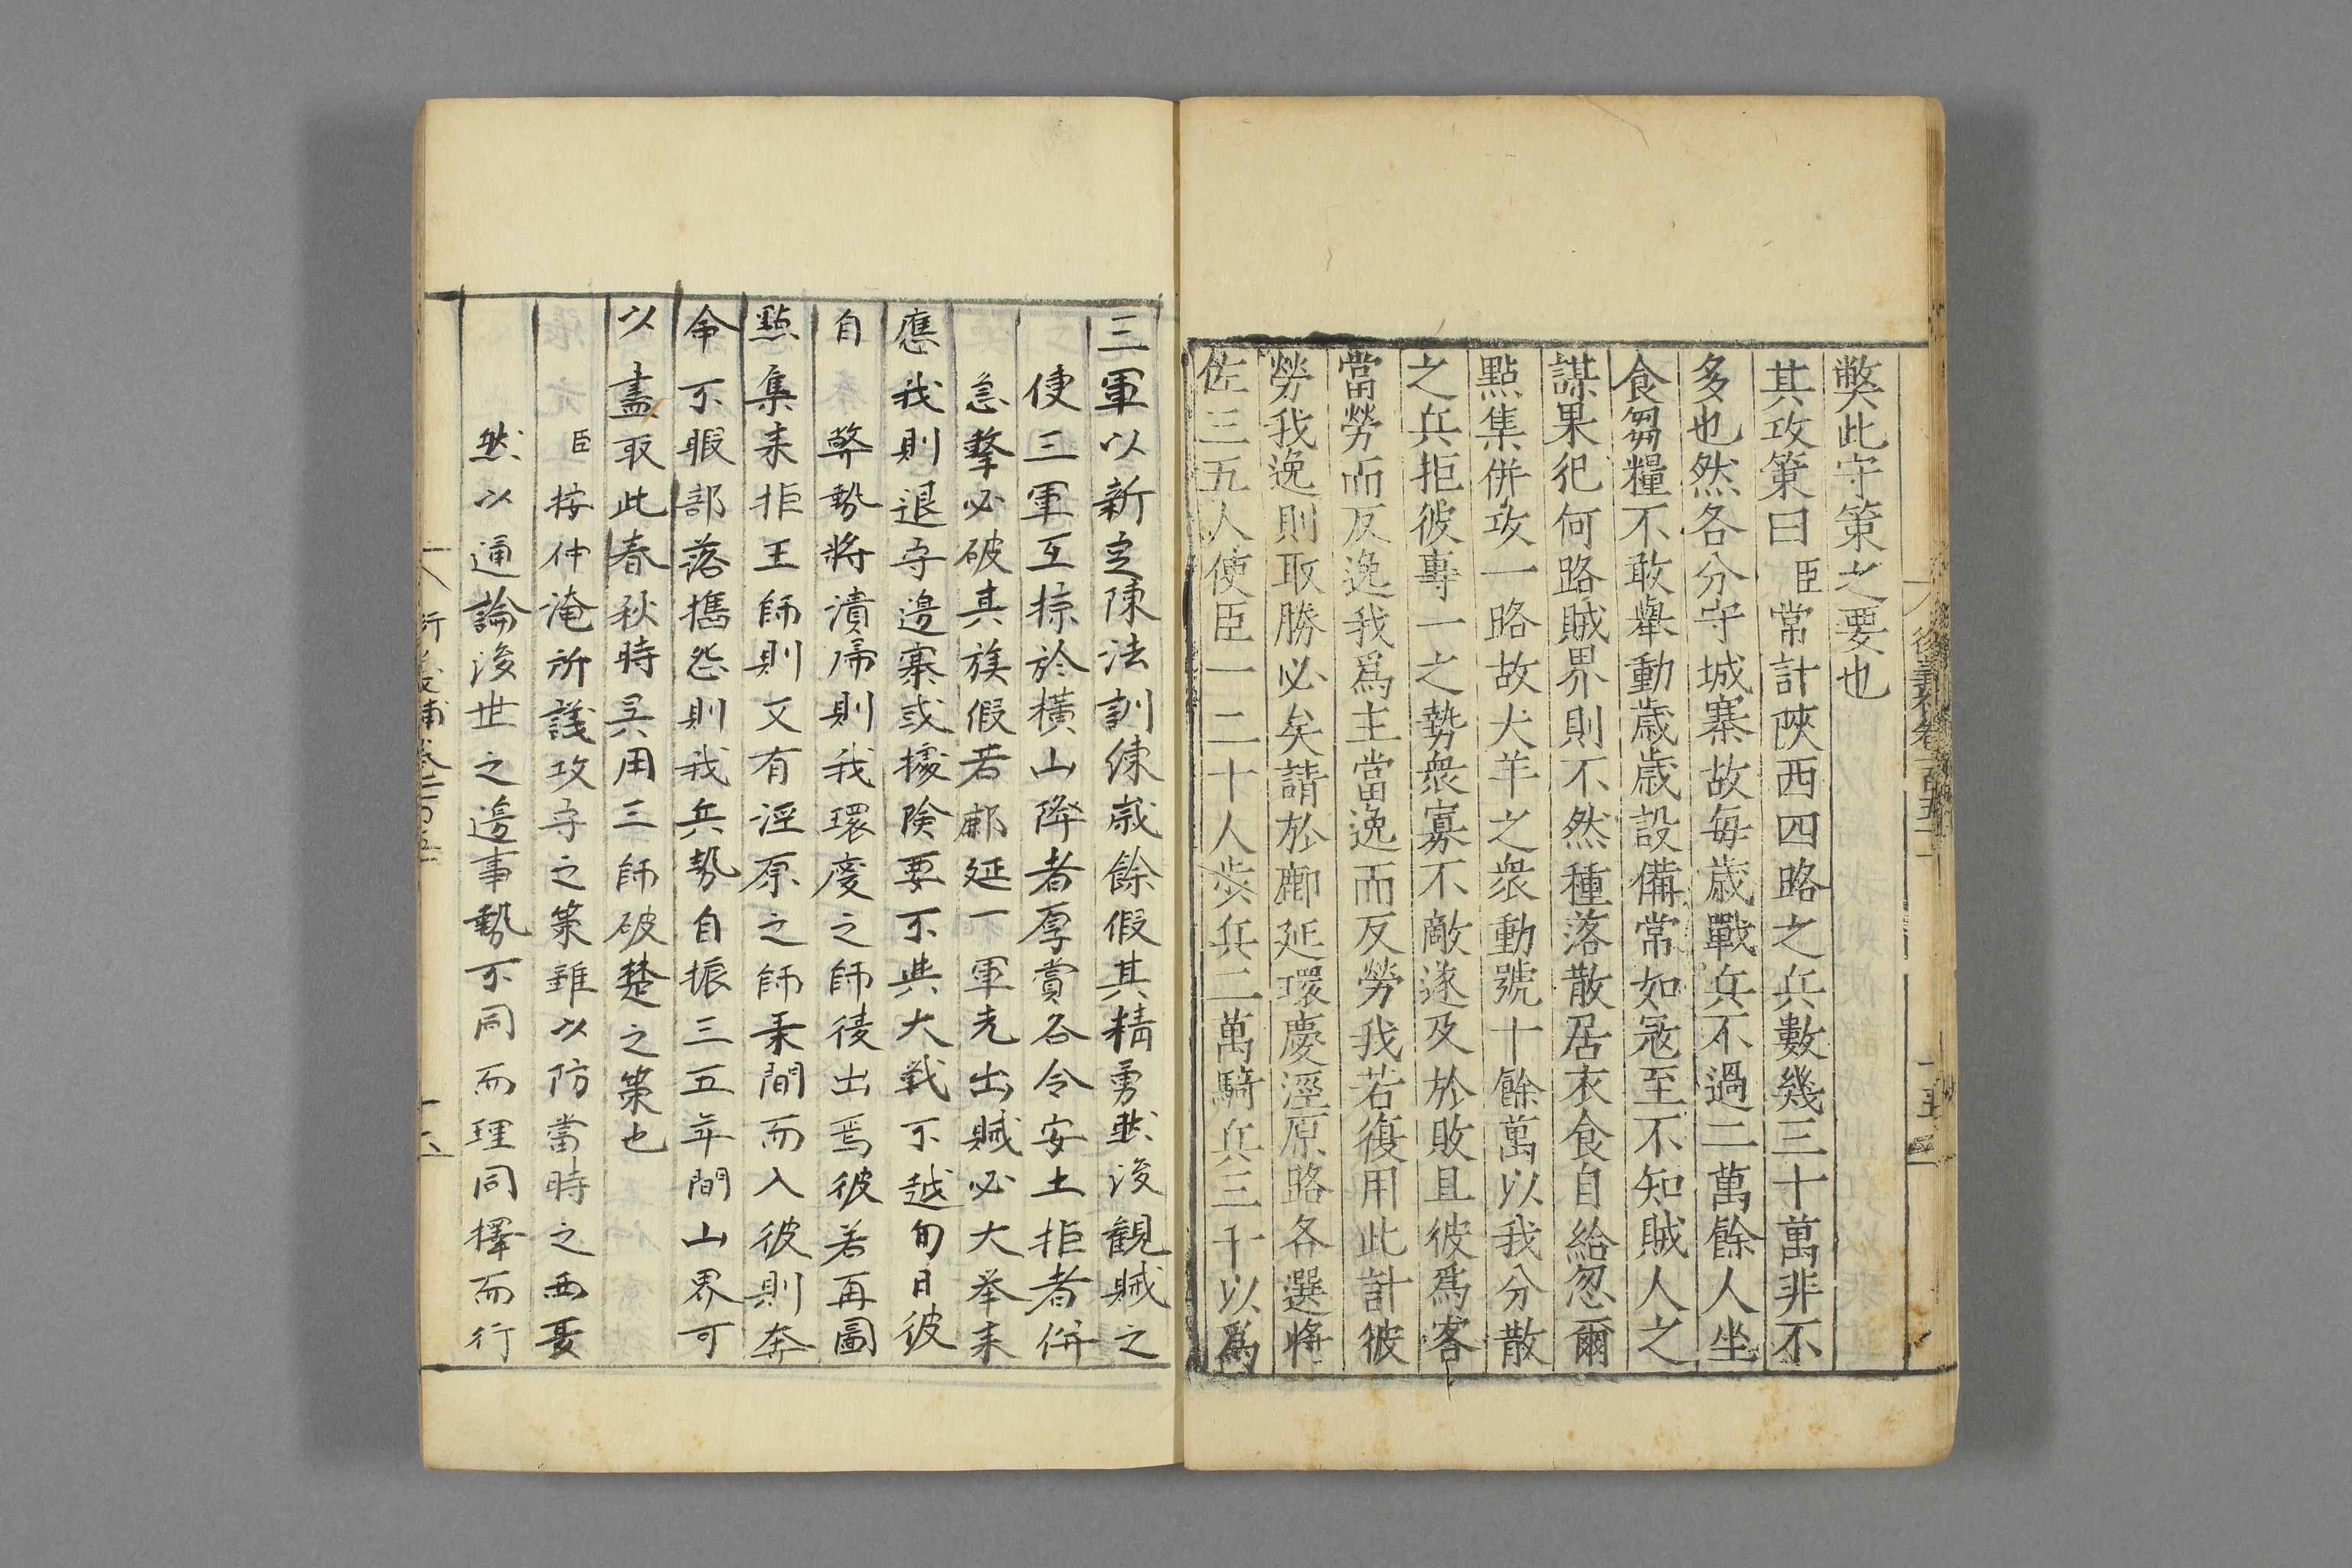 弊此守策之要也
其攻策曰臣常計陜西四路之兵數幾三十萬非不
多也然各分守城寨故每歲戰兵不過二萬餘人坐
食芻糧不敢舉動歲歲設備常如冦至不知賊人之
謀果犯何路賊界則不然種落散居衣食自給忽爾
點集併攻一路故犬羊之衆動號十餘萬以我分散
之兵拒彼專一之勢衆寡不敵遂及於敗且彼爲客
當勞而反逸我爲主當逸而反勞我若復用此計彼
勞我逸則取勝必矣請於鄜延環慶涇原路各選將
佐三五人使臣一二十人步兵二萬騎兵三千以爲
三軍以新定陳法訓練歲餘假其精勇然後觀賊之
便三軍互掠於橫山降者厚賞各令安土拒者併
急擊必破其族假若鄜延一軍先出賊必大举来
應我則退守邊寨或據険要不與大戦不越旬日彼
自弊勢將潰歸則我環慶之師後出焉彼若再圖
點集来拒王師則又有涇原之師乘間而入彼則奔
命不暇部落攜怨則我兵勢自振三五年間山界可
以盡取此春秋時吴用三師破楚之策也
臣按仲淹所議攻守之策雖以防當時之西夏
然以通論後世之邊事勢不同而理同擇而行